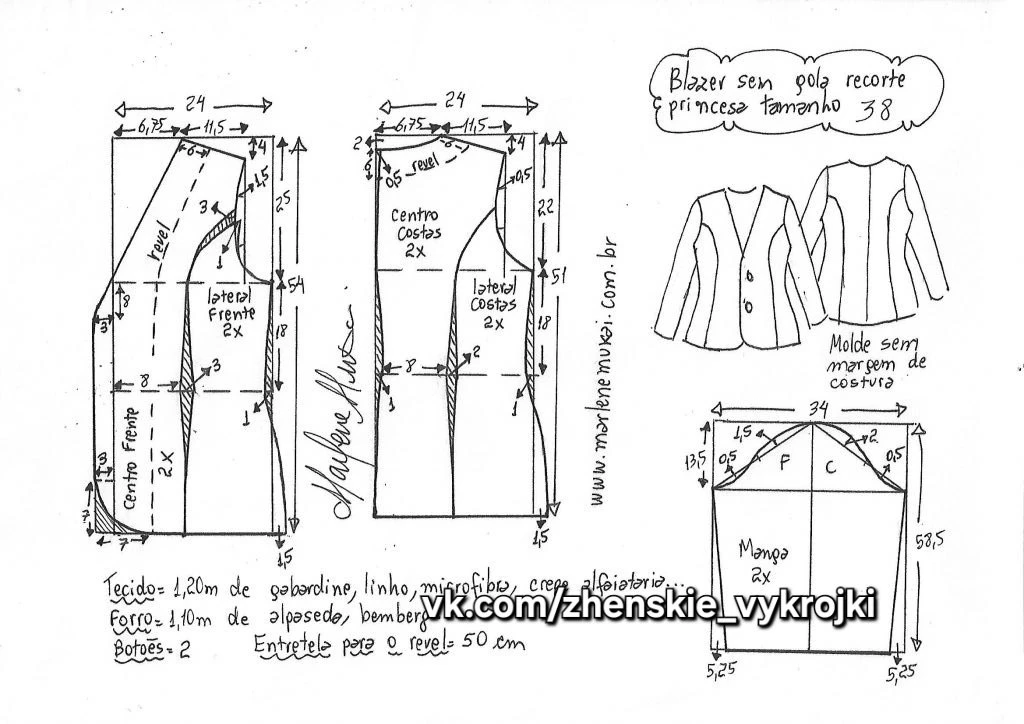 Blazer sem gola recorte
princesa tamanho 38
24
6,75
11,5
4
6
1,5
25
3
1
revel
8
3
lateral
Frente
2x
54
18
8
3
1
Centro Frente
2x
3
7
7
1,5
24
6,75
11,5
2
6
0,5
revel
6
4
0,5
22
Centro
Costas
2x
51
lateral
Costas
2x
18
8
2
1
1
1,5
Marlene Mukai
www.marlenemukai.com.br
Molde sem
margem de
costura
34
13,5
1,5
2
0,5
0,5
F
C
58,5
Manga
2x
5,25
5,25
Tecido= 1,20m de gabardine, linho, microfibra, crepe alfaiataria...
Forro= 1,10m de alpaseda, bemberg
vk.com/zhenskie_vykrojki
Botões= 2
Entretela para o revel= 50 cm